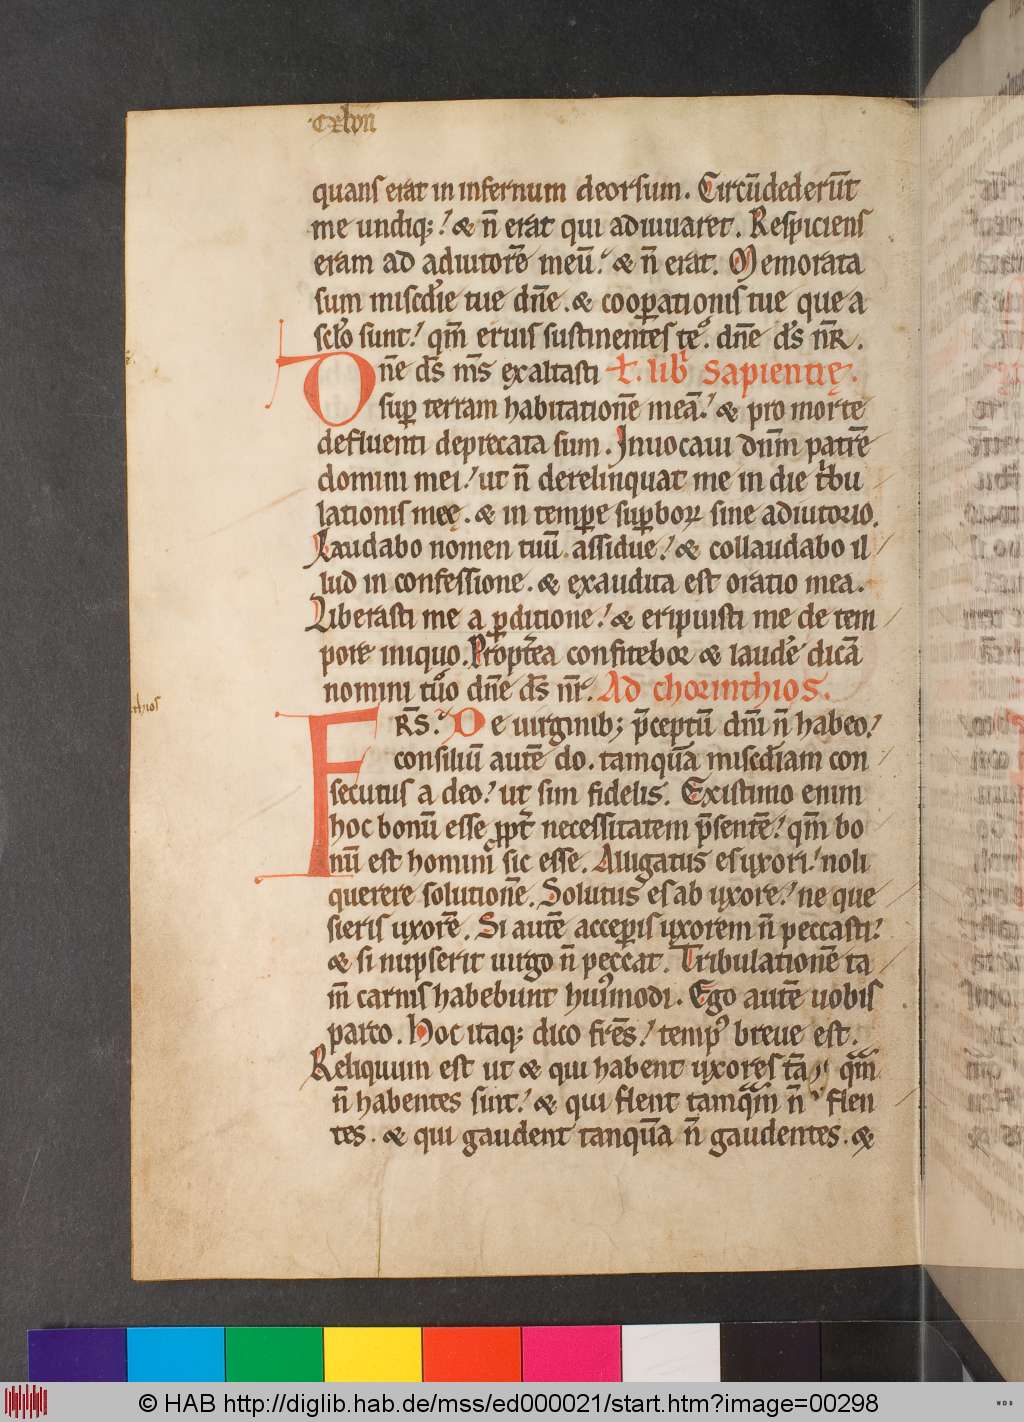 quans erat in infernum deorsum. Circūdederūt
me undiq;! & n̄ erat qui adiuuaret. Respiciens
eram ad adiutorē meū. & n̄ erat. Memorata
sum miscd̓ie tue dn̄e. & cooꝑationis tue que a
sclo̓ sunt! qm̄ eruis sustinentes te. dn̄e ds̄ nr̄.
Dn̄e ds̄ ms̄ exaltasti t. lib̓ Sapientię.
suꝑ terram habitationē meā! & pro morte
defluenti deprecata sum. Inuocaui dnm̄ patrē
domini mei! ut n̄ derelinquat me in die t̓bu
lationis meę. & in temꝑe suꝑboꝝ sine adiutorio.
Laudabo nomen tuū assidue! & collaudabo il
lud in confessione. & exaudita est oratio mea.
Liberasti me a ꝑditione! & eripuisti me de tem
pore iniquo. Propt̄ea confitebor & laudē dicā
nomini tuo dn̄e ds̄ mr̄. Ad chorinthios.
FRS̄. De uirginib; p̄ceptū dnī n̄ habeo!
consiliū autē do. tamquā miscd̓iam con
secutus a deo! ut sim fidelis. Existimo enim
hoc bonū esse ꝓpt̄ necessitatem p̄sentē! qm̄ bo
nū est homini sic esse. Alligatus es uxori! noli
querere solutionē. Solutus es ab uxore! ne que
sieris uxorē. Si autē acceꝑis uxorem n̄ peccasti!
& si nupserit uirgo n̄ peccat. Tribulationē ta
m̄ carnis habebunt hui᷒modi. Ego autē uobis
parco. Hoc itaq; dico frēs! temp᷒ breue est.
Reliquum est ut & qui habent uxores tā qm̄
n̄ habentes sint! & qui flent tamqm̄ n̄ flen
tes. & qui gaudent tanquā n̄ gaudentes. &
© HAB http://diglib.hab.de/mss/ed000021/start.htm?image=00298